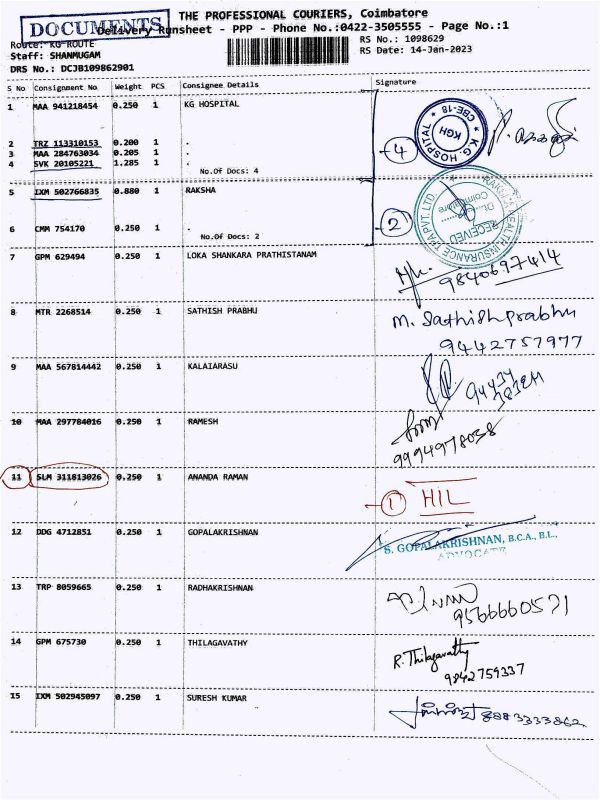 DOCUMENTS
THE PROFESSIONAL COURIERS, Coimbatore
Delivery Runsheet - PPP - Phone No.:0422-3505555 - Page No.:1
Route: KG ROUTE
RS No.: 1098629
Staff: SHANMUGAM
RS Date: 14-Jan-2023
DRS No.: DCJB109862901
S No Consignment No Weight PCS Consignee Details Signature
1 MAA 941218454 0.250 1 KG HOSPITAL
K.G. HOSPITAL * CBE-18 *
KGH
4
2 TRZ 113310153 0.200 1 .
3 MAA 284763034 0.205 1 .
4 SVK 20105221 1.285 1 .
No.Of Docs: 4
5 IXM 502766835 0.880 1 RAKSHA
RAKSHA HEALTH INSURANCE TPA PVT. LTD
Coimbatore
Dt.
RECEIVED
2
6 CMM 754170 0.250 1 .
No.Of Docs: 2
7 GPM 629494 0.250 1 LOKA SHANKARA PRATHISTANAM
9840697414
8 MTR 2268514 0.250 1 SATHISH PRABHU
M. Sathish Prabhu
9442757977
9 MAA 567814442 0.250 1 KALAIARASU
10 MAA 297784016 0.250 1 RAMESH
9994978038
11 SLM 311813026 0.250 1 ANANDA RAMAN
1 HIL
12 DDG 4712851 0.250 1 GOPALAKRISHNAN
S. GOPALAKRISHNAN, B.C.A., B.L.,
ADVOCATE
13 TRP 8059665 0.250 1 RADHAKRISHNAN
9566660571
14 GPM 675730 0.250 1 THILAGAVATHY
R. Thilagavathy
9842759337
15 IXM 502945097 0.250 1 SURESH KUMAR
8883333862